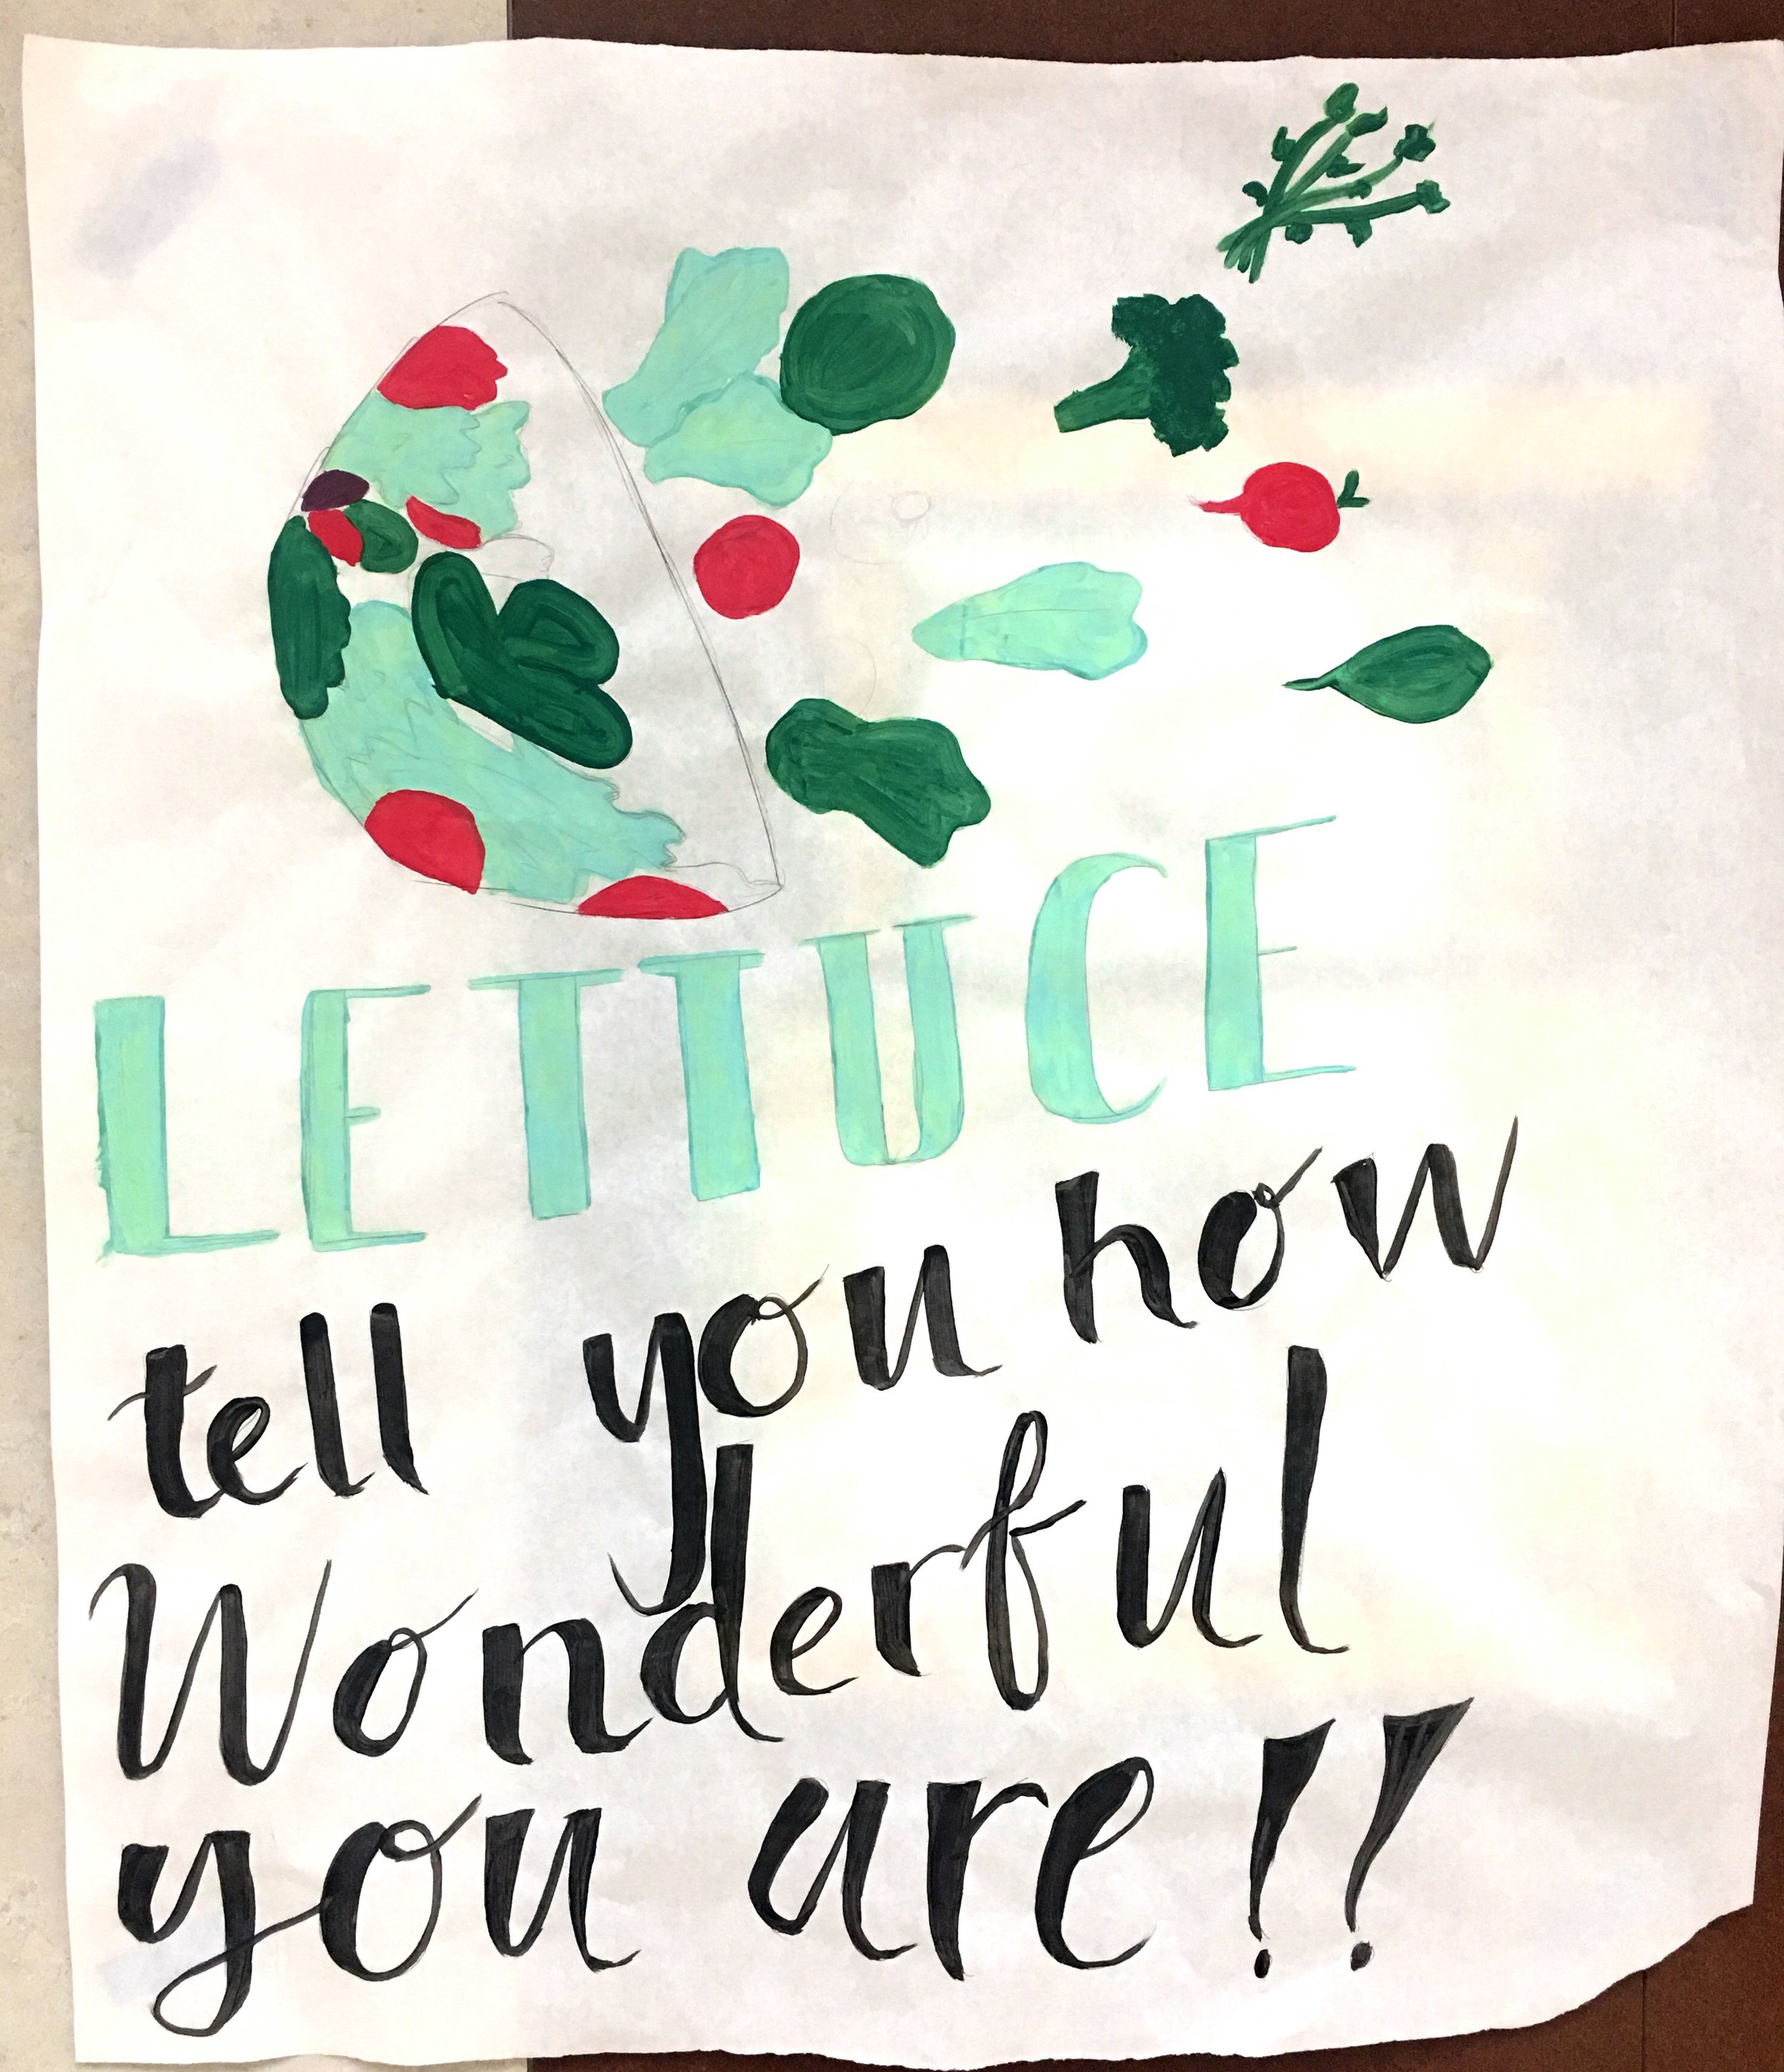 LETTUCE
tell you how
Wonderful
you are!!